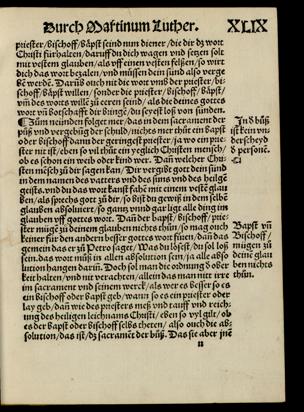 Durch Martinum Luther. XLIX
priester/bischoff/bäpst seind nun diener/die dir dz wort
Christi fürhalten/daruff du dich wagen vnd setzen solt
mit vestem glauben/als vff einen vesten felßen/so wirt
dich das wort bezalen/vnd müssen dein sünd also verge
bē werdē. Darūb ouch nit die wort vmb der priester/bi-
schoff/bäpst willen/sonder die priester/bischoff/bäpst/
vm̄ des worts willē zů eeren seind/als die deines gottes
wort vn̄ botschafft dir bringē/du seyest loß von sünden.
¶ Zům neündem folget mer/das in dem sacrament der
půß vnd vergebūg der schuld/nichts mer thůt ein bapst
oder bischoff dann der geringest priester/ja wo ein prie-
ster nit ist/eben so vil thůt ein yeglich Christen mensch/
ob es schon ein weib oder kind wer. Dan̄ welcher Chri-
sten mēsch zů dir sagen kan/Dir vergibt gott dein sünd
in dem namen des vatters vnd des suns vnd des heilgē
geists. vnd du das wort kanst fahē mit einem vestē glau
ben/als sprechs gott zů dir/so bist du gewiß in dem selbē
glauben absoluiert/so gantz vnd gar ligt alle ding im
glauben vff gottes wort. Dan̄ der bapst/bischoff/prie-
ster mügē zů deinem glauben nichts thůn/so mag ouch
keiner für den andern besser gottes wort fieren/dan̄ das
gemein das er zů Petro saget/Was du lösest/du sol loß
sein. das wort můß in allen absolution sein/ja alle abso
lution hangen darin. Doch sol man die ordnung d̄ ober
keit halten/vnd nit verachten/allein das man nit irre
im sacrament vnd seinem werck/als wer es besser so es
ein bischoff oder bapst geb/wann so es ein priester oder
lay geb/dan̄ wie des priesters meß vnd tauff vnd reich-
ung des heiligen leichnams Christi/eben so vyl gilt/ob
es der bapst oder bischoff selbs theten/also ouch die ab-
solution/das ist/dz sacramēt der bůß. Das sie aber jnē
In d̄ bůß
ist kein vn-
derscheyd
d̄ personē.
Bapst vn̄
Bischoff/
mügen zů
deine glau
ben nichts
thůn.